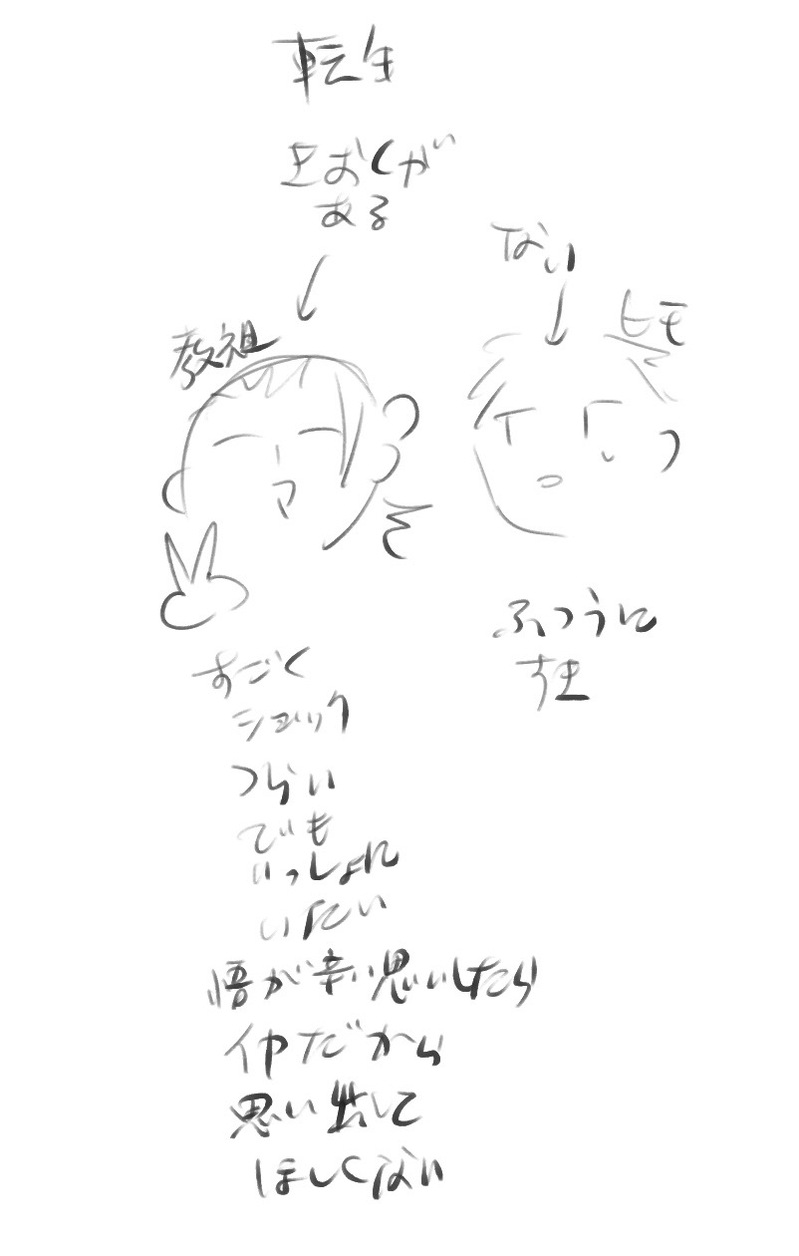 転生
きおくが
ある
ない
教祖
ヒモ
すごく
ショック
つらい
でも
いっしょに
いたい
悟が辛い思いしたら
イヤだから
思い出して
ほしくない
ふつうに
すき